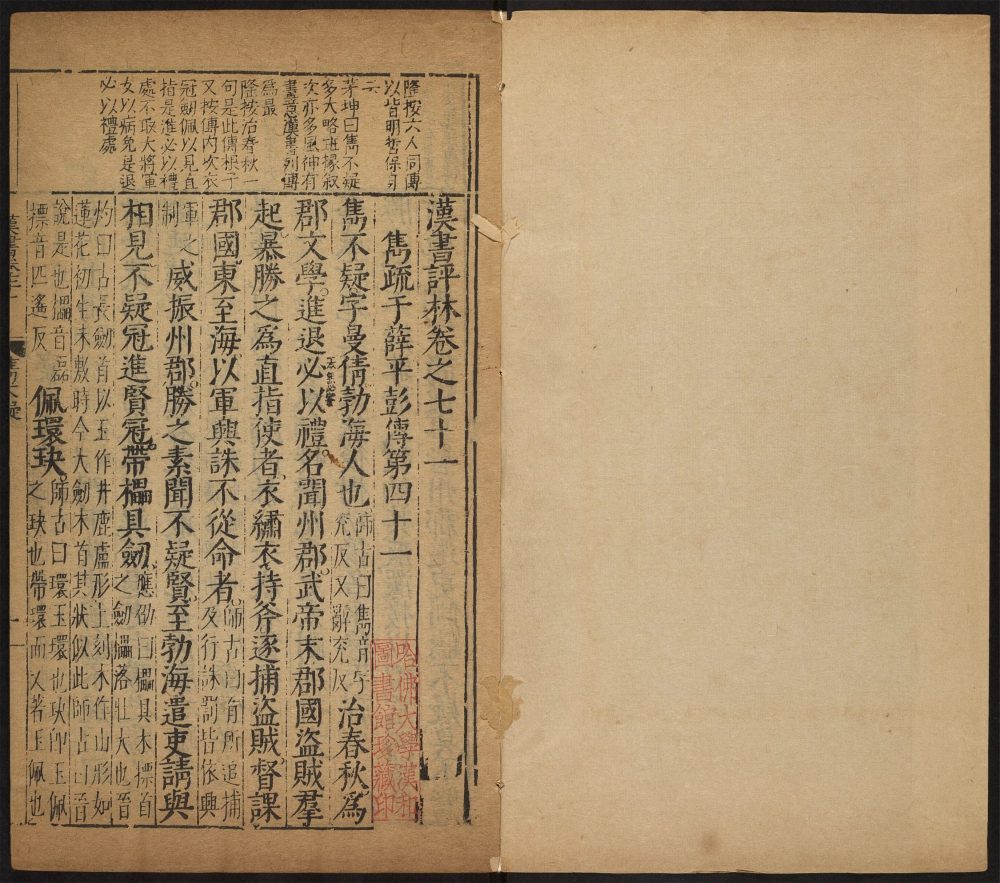 隆按六人同傳
以皆明哲保身
云
茅坤曰雋不疑
多大略班掾敘
次亦多風神有
畫意漢書列傳
爲最
隆按治春秋一
句是此傳根子
又按傳內次衣
冠劒佩以見直
指是進必以禮
處不取大將軍
女以病免是退
必以禮處
漢書評林卷之七十一
雋疏于薛平彭傳第四十一
雋不疑字曼倩勃海人也師古曰雋音字兖反又辭兖反治春秋爲
郡文學進退必以禮名聞州郡武帝末郡國盜賊羣
起暴勝之爲直指使者衣繡衣持斧逐捕盜賊督課
郡國東至海以軍興誅不從命者師古曰有所追捕及行誅罰皆依興
軍之制威振州郡勝之素聞不疑賢至勃海遣吏請與
相見不疑冠進賢冠帶櫑具劒應劭曰櫑具木摽首之劒櫑落壯大也晉
灼曰古長劒首以玉作井鹿盧形上刻木作山形如
蓮花初生未敷時今大劒木首其狀似此師古曰晉
說是也櫑音磊摽音匹遙反佩環玦師古曰環玉環也玦卽玉佩之玦也帶環而又著玉佩也
哈佛大學漢和
圖書館珍藏印